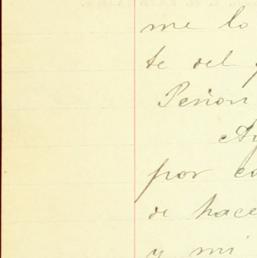 me lo
te del
Peñon
por
de hace
y mi